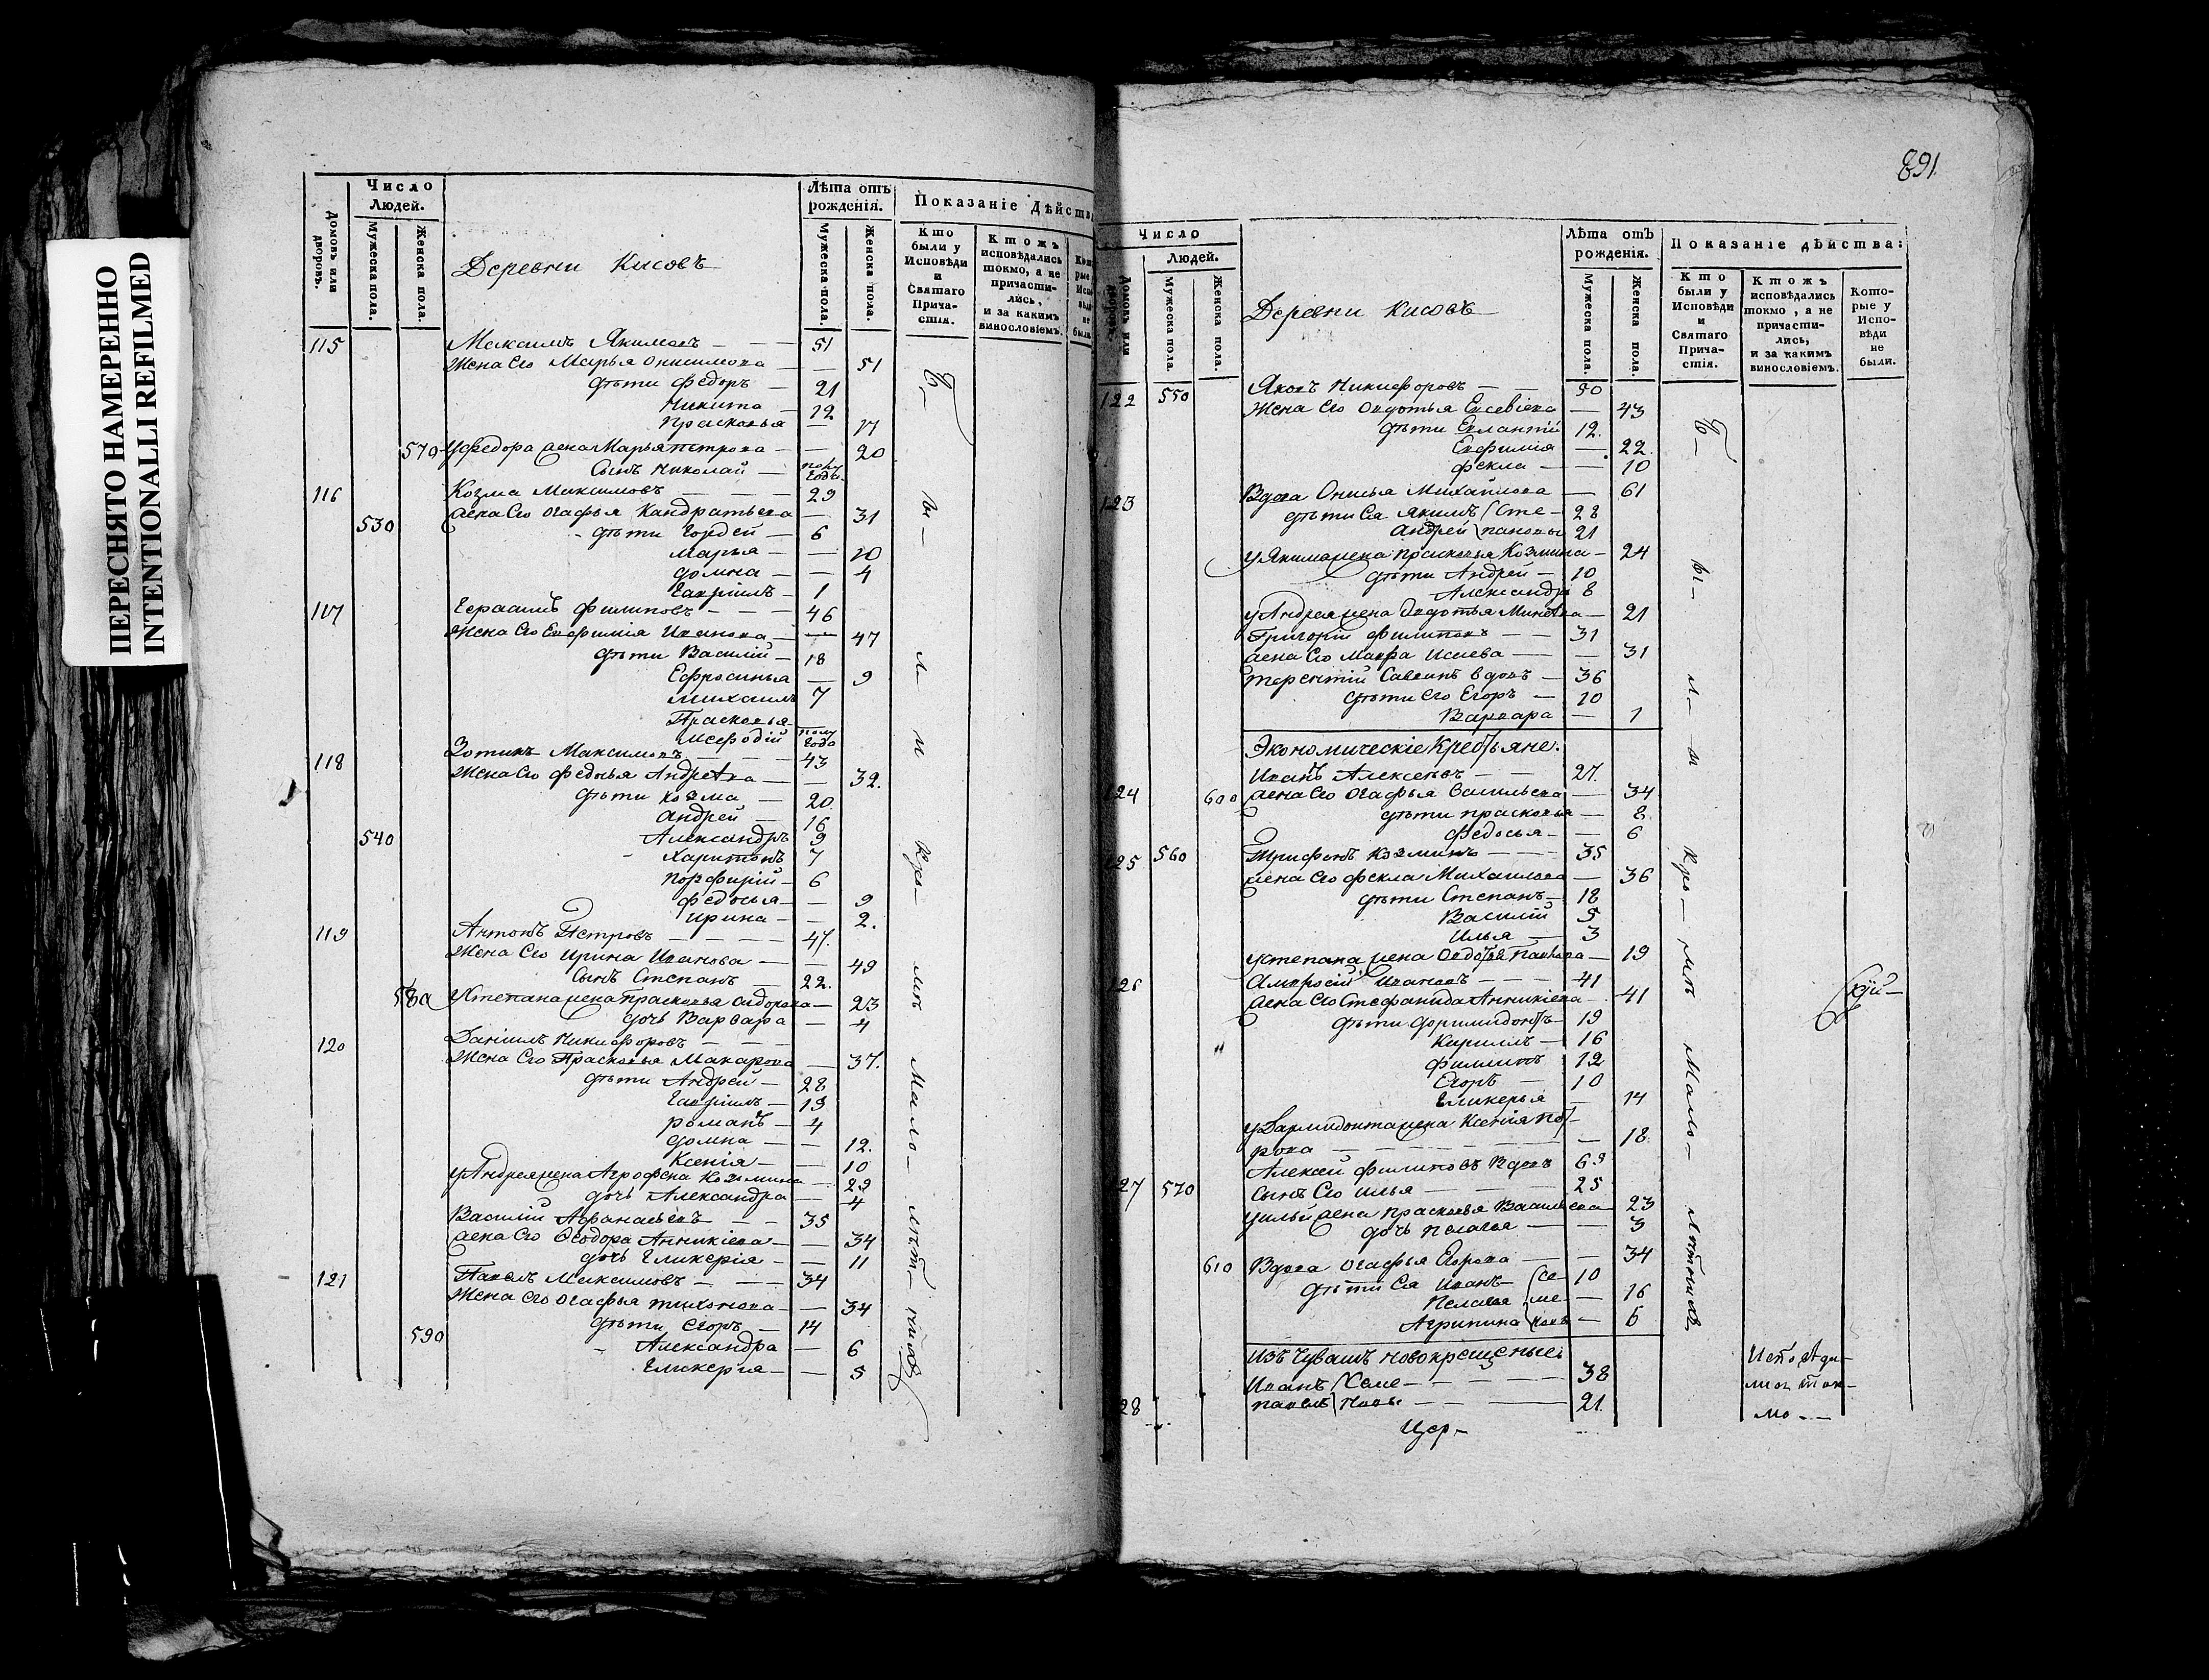 ПЕРЕСНЯТО НАМЕРЕННО
INTENTIONALLI REFILMED
Число
Людей.
Домовъ или дворовъ.
Мужеска пола.
Женска пола.
Деревни Кисовъ
Лѣта отъ рожденія.
Мужеска пола.
Женска пола.
Показаніе Дѣйства
Кто были у Исповѣди и Святаго Причастія.
Ктожъ исповѣдались токмо, а не причастились, и за какимъ винословіемъ.
115 Максимъ Якимовъ 51
Жена Его Марья Онисимова 51
дѣти Федоръ 21
Никита 12
Прасковья 17
570 У Федора жена Марья Петрова 20
Сынъ Николай полу годъ
116 Козма Максимовъ 29
жена Его Огафья Кандратьева 31
530 дѣти Гордей 6
Марья 10
Домна 4
Гавріилъ 1
117 Герасимъ Филиповъ 46
Жена Его Евфимія Иванова 47
дѣти Василій 18
Ефросинья 9
Михаилъ 7
Прасковья
Мефодій полу годъ
118 Зотикъ Максимовъ 43
Жена Его Федосья Андреева 32.
дѣти Козма 20
Андрей 16
540 Александръ 9
Харитонъ 7
Порфирій 6
Федосья 9
Ирина 2.
119 Антонъ Петровъ 47.
Жена Его Ирина Иванова 49
Сынъ Степанъ 22.
580 У Степана жена Прасковья 23
дочь Варвара 4
120 Даніилъ Никифоровъ
Жена Его Прасковья Макарова 37.
дѣти Андрей 28
Гавріилъ 19
Романъ 4
Домна 12.
Ксенія 10
У Андрея жена Агрофена Козмина 29
дочь Александра 4
Василій Афанасьевъ 35
жена Его Феодора Аникіева 34
дочь Гликерія 11
121 Павелъ Максимовъ 34
Жена Его Огафья Тихонова 34
дѣти Егоръ 14
590 Александра 6
Гликерія 5
Бы-
ли
кро-
мѣ
Мало-
лѣт-
891
Число
Людей.
Домовъ или дворовъ.
Мужеска пола.
Женска пола.
Деревни Кисовъ
Лѣта отъ рожденія.
Мужеска пола.
Женска пола.
Показаніе дѣйства:
Кто были у Исповѣди и Святаго Причастія.
Ктожъ исповѣдались токмо, а не причастились, и за какимъ винословіемъ.
Которые у Исповѣди не были.
122 550 Яковъ Никифоровъ 50
Жена Его Овдотья Евсевіева 43
дѣти 12.
Евфимія 22.
Фекла 10
123 Вдова Онисья Михайлова 61
дѣти Ея Якимъ (Сте- 28
Андрей (пановы 21
у Якима жена Прасковья Козмина 24
дѣти Андрей 10
Александръ 8
у Андрея жена Овдотья Минаева 21
Григорій Филиповъ 31
жена Его Мавра Исаева 31
Терентій Савинъ вдовъ 36
дѣти Его Егоръ 10
Варвара 1
Экономическіе Крестьяне.
124 Иванъ Алексеевъ 27.
600 жена Его Огафья Васильева 34
дѣти Прасковья 8
Федосья 6
125 560 Трифонъ Козминъ 35
жена Его Фекла Михайлова 36
дѣти Степанъ 18
Василій 5
Илья 3
у Степана жена Овдотья Павлова 19
126 Амвросій Ивановъ 41
жена Его Стефанида Аникіева 41
дѣти Дормидонтъ 19
Кирилъ 16
Филипъ 12
Егоръ 10
Гликерья 14
у Дармидонта жена Ксенія
18.
Алексей Филиповъ Вдовъ 69
127 570 Сынъ Его Илья 25
у Ильи жена Прасковья Васильева 23
дочь Пелагея 3
610 Вдова Огафья Егорова 34
дѣти Ея Иванъ (Се- 10
Пелагея (ме- 16
Агрипина (новы 6
Изъ Чувашъ Новокрещеные.
Иванъ (Семе- 38
128 Павелъ (новы 21.
Цер-
Бы-
ли
кро-
мѣ
Мало-
лѣтнихъ